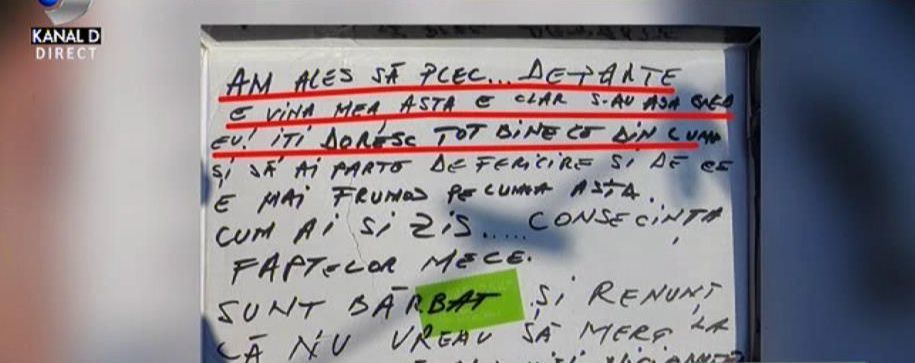 KANAL D
DIRECT
AM ALES SĂ PLEC... DEPARTE
E VINA MEA ASTA E CLAR S-AU AȘA CRED
EU! ITI DORESC TOT BINE CE DIN LUMA
ȘI SĂ AI PARTE DE FERICIRE SI DE CE
E MAI FRUMOS PE LUMA ASTA.
CUM AI SI ZIS..... CONSECINȚA
FAPTELOR MELE.
SUNT BĂRBAT ȘI RENUNȚ
CĂ NU VREAU SĂ MERG LA